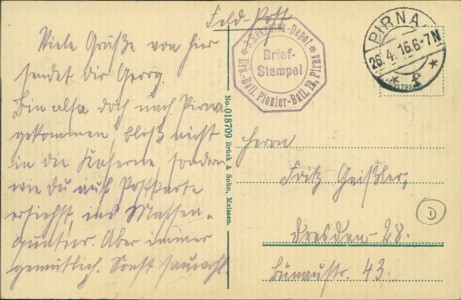 Feld-Post
Viele Grüße von hier
sendet dir Georg.
Bin also doch nach Pirna
gekommen bloß nicht
in die Kaserne sondern
wie du auf Postkarte
ersiehst, ins Massen-
quartier. Aber immer
gemütlich. Sonst sauwohl.
Brief-
Stempel
Ers.-Batl. Pionier-Batl. 12, Pirna
PIRNA
26.4.16.6-7N
No. 018709 Brück & Sohn, Meissen.
Herrn
Fritz Geißler,
Dresden-28.
43.
D